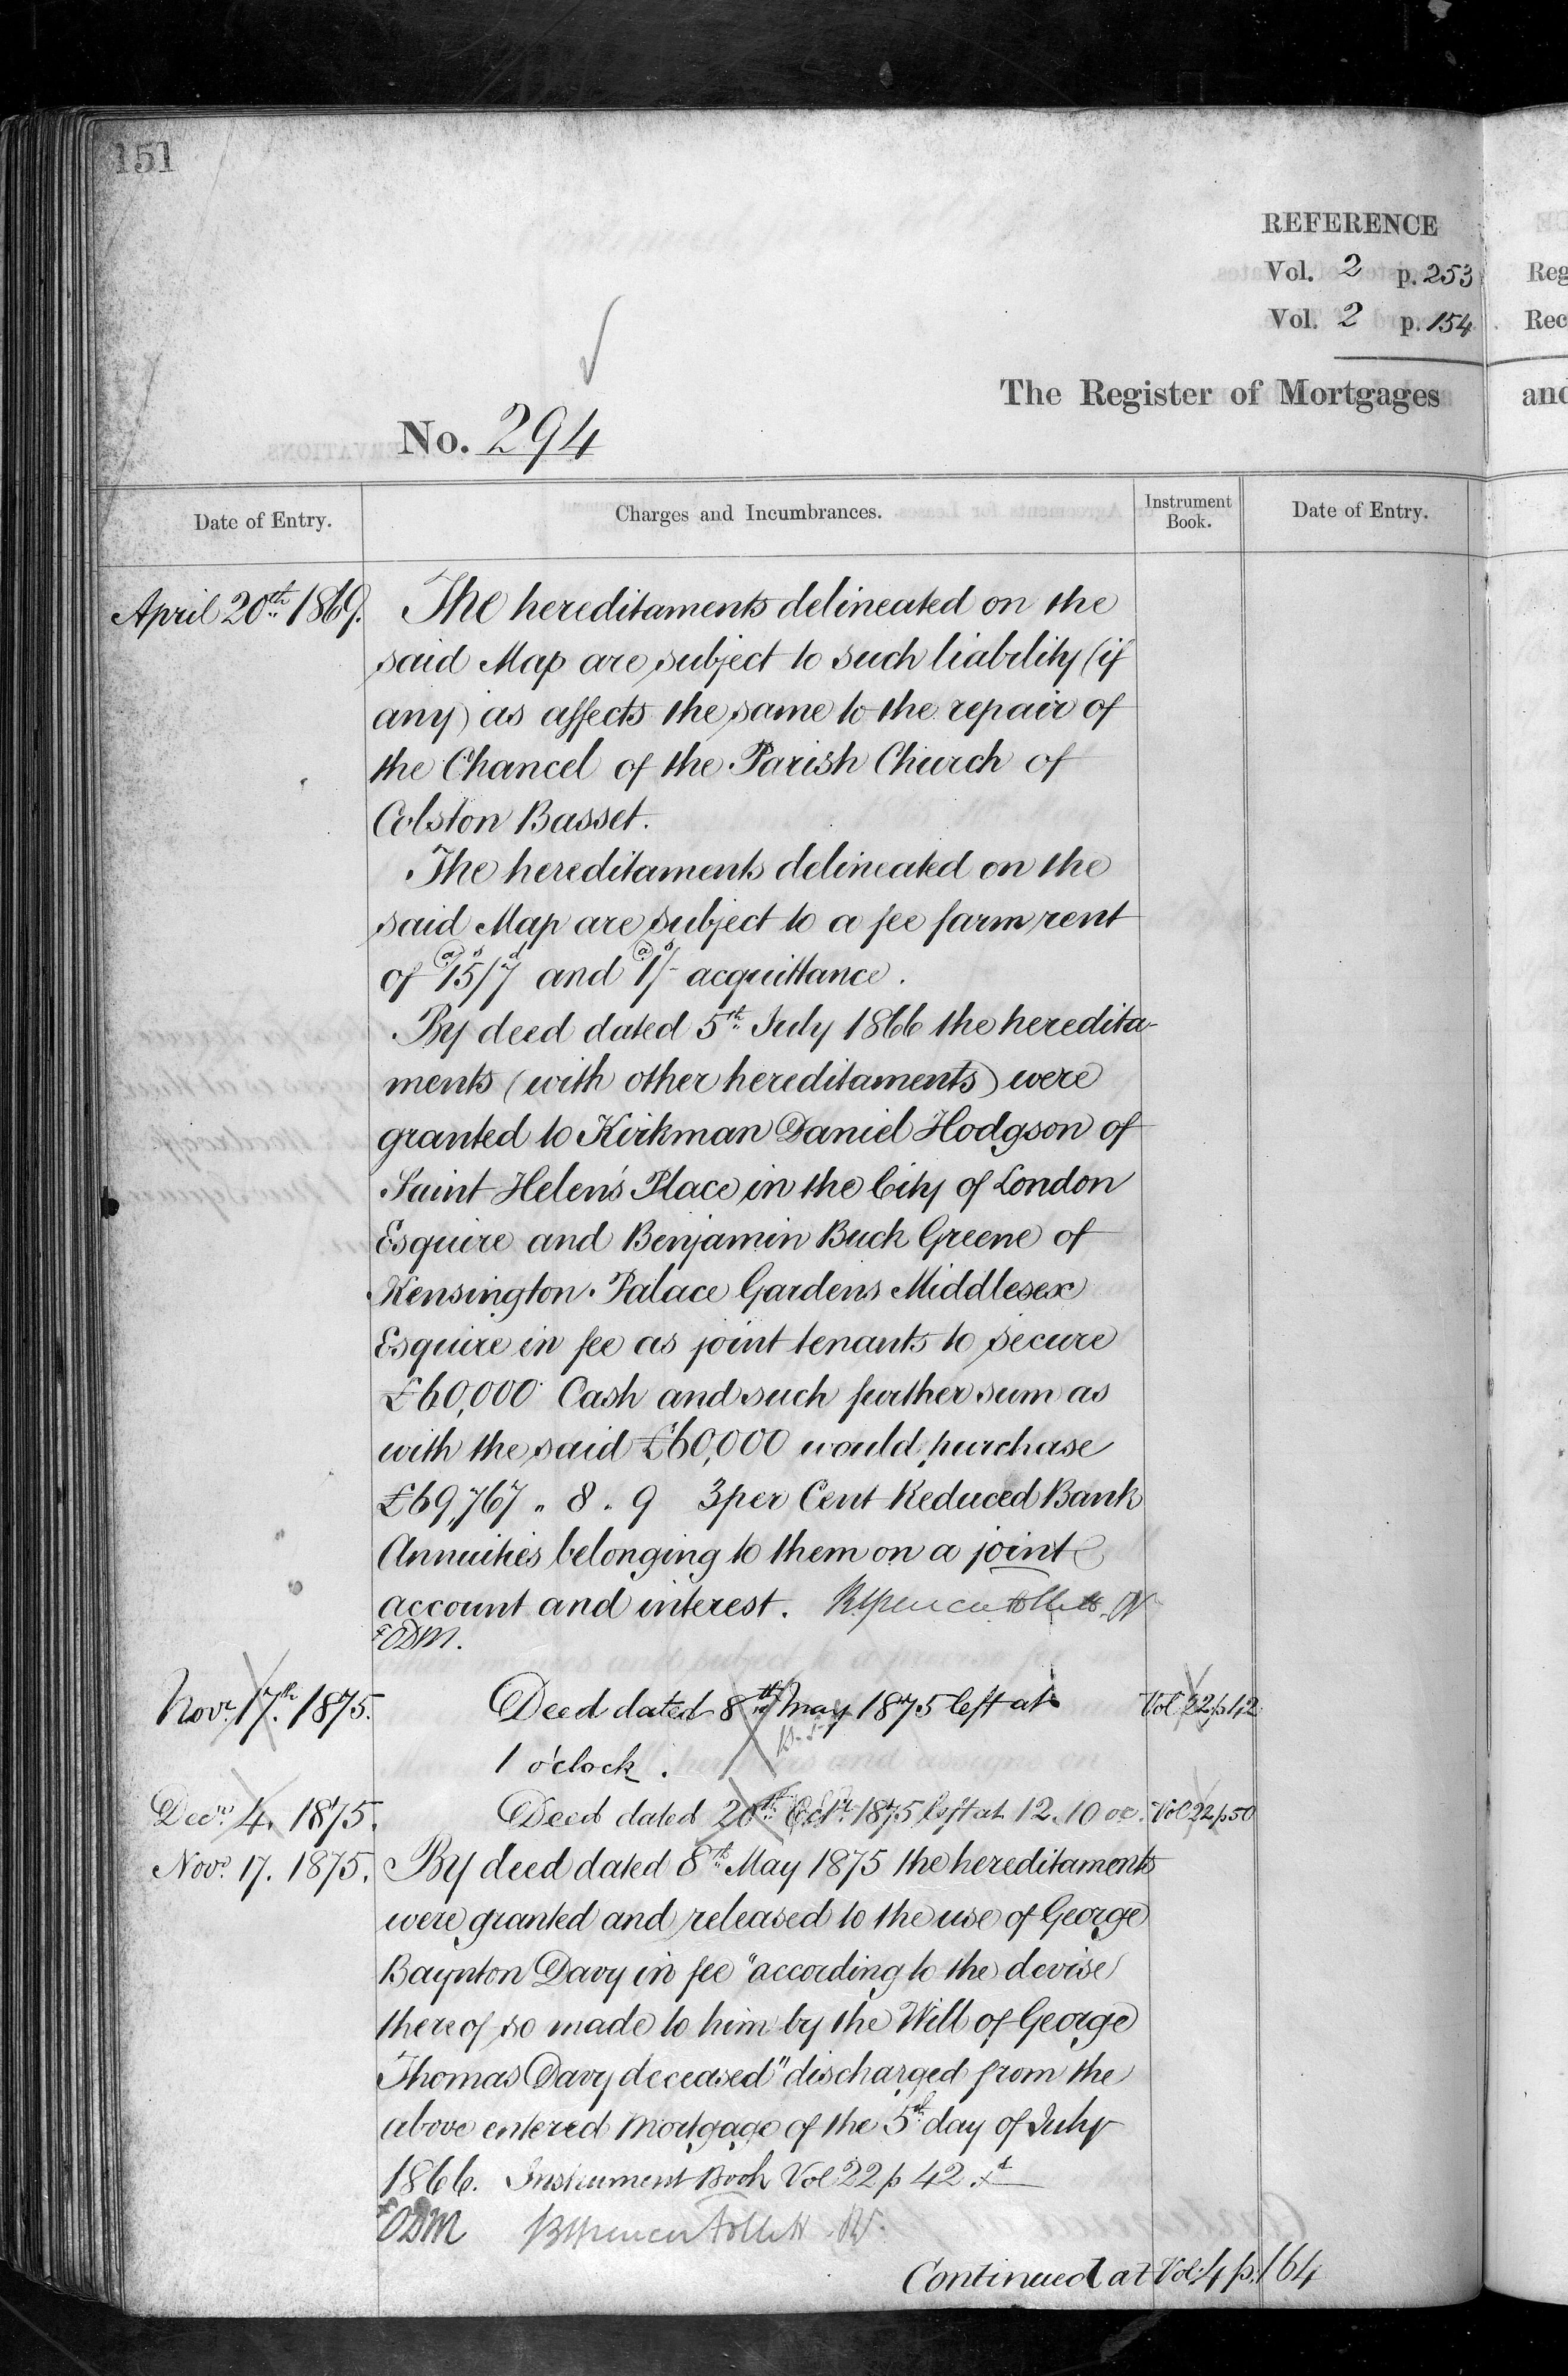 151
REFERENCE
Vol. 2 p. 253
Vol. 2 p. 154
The Register of Mortgages
No. 294
Date of Entry.
Charges and Incumbrances.
Instrument Book.
Date of Entry.
April 20th 1869. The hereditaments delineated on the
said Map are subject to such liability (if
any) as affects the same to the repair of
the Chancel of the Parish Church of
Colston Basset.
The hereditaments delineated on the
said Map are subject to a fee farm rent
of @ 15s/7d and @ 1s/- acquittance.
By deed dated 5th July 1866 the heredita-
ments (with other hereditaments) were
granted to Kirkman Daniel Hodgson of
Saint Helen's Place in the City of London
Esquire and Benjamin Buck Greene of
Kensington Palace Gardens Middlesex
Esquire in fee as joint tenants to secure
£60,000 Cash and such further sum as
with the said £60,000 would purchase
£69,767 " 8 " 9 3 per Cent Reduced Bank
Annuities belonging to them on a joint
account and interest.
ODM.
Novr. 17th. 1875. Deed dated 8th May 1875 left at Vol 22 p 42
1 o'clock.
Decr. 4. 1875. Deed dated 20th Octr. 1875 left at 12.10 oc. Vol 22 p 50
Novr. 17. 1875. By deed dated 8th May 1875 the hereditaments
were granted and released to the use of George
Baynton Davy in fee "according to the devise
thereof so made to him by the Will of George
Thomas Davy deceased" discharged from the
above entered Mortgage of the 5th day of July
1866. Instrument Book Vol 22 p 42.
ODM
Continued at Vol. 4 p. 164
Reg
Rec
and